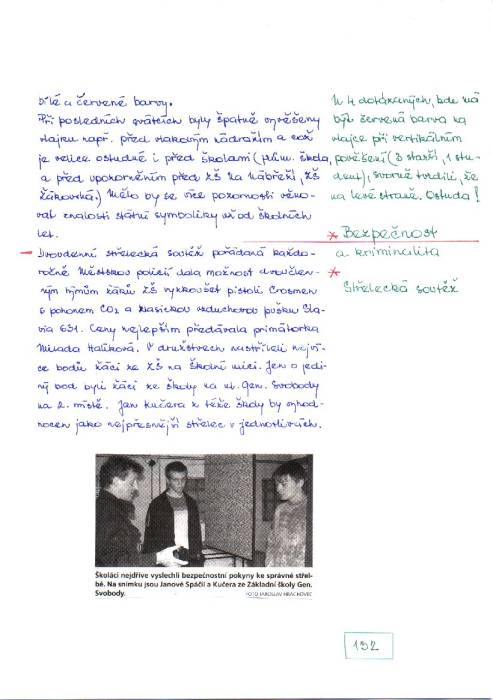 bílé a červené barvy.
Při posledních svátcích byly špatně vyvěšeny
vlajky např. před vlakovým nádražím a což
je velice ostudné i před školami (prům. škola,
a před upozorněním před ZŠ Na nábřeží, ZŠ
Žákovská). Mělo by se více pozornosti věno-
vat znalosti státní symboliky už od školních
let.
Dvoudenní střelecká soutěž pořádaná každo-
ročně Městskou policií, dala možnost dvoučlen-
ným týmům žáků ZŠ vyzkoušet pistoli Crosman
s pohonem CO2 a klasickou vzduchovou pušku Sla-
via 631. Ceny nejlepším předávala primátorka
Milada Halíková. V družstvech nastříleli nejví-
ce bodů žáci ze ZŠ na Školní ulici. Jen o jedi-
ný bod byli žáci ze školy na ul. Gen. Svobody
na 2. místě. Jan Kučera z téže školy byl vyhod-
nocen jako nejpřesnější střelec v jednotlivcích.
U 4 dotázaných, kde má
být červená barva na
vlajce při vertikálním
pověšení (3 starší, 1 stu-
dent), svorně tvrdili, že
na levé straně. Ostuda!
* Bezpečnost
a kriminalita
*
Střelecká soutěž
Školáci nejdříve vyslechli bezpečnostní pokyny ke správné střel-
bě. Na snímku jsou Janové Spáčil a Kučera ze Základní školy Gen.
Svobody. FOTO JAROSLAV HRACHOVEC
192